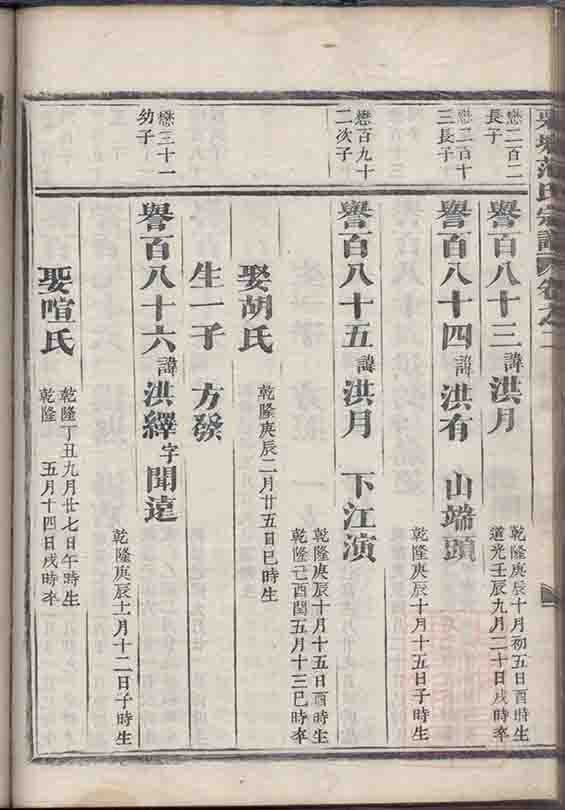 范氏宗譜 卷之二
懋二百二
長子
譽百八十三 諱洪月
乾隆庚辰十月初五日酉時生
道光壬辰九月二十日戌時卒
懋二百十
三長子
譽百八十四 諱洪有 山端頭
乾隆庚辰十月十五日子時生
懋百九十
二次子
譽百八十五 諱洪月 下江演
乾隆庚辰十月十五日酉時生
乾隆己酉閏五月十三巳時卒
娶胡氏
乾隆庚辰二月廿五日巳時生
生一子 方發
懋三十一
幼子
譽百八十六 諱洪繹 字聞遠
乾隆庚辰十一月十二日子時生
娶喧氏
乾隆丁丑九月廿七日午時生
乾隆 五月十四日戌時卒